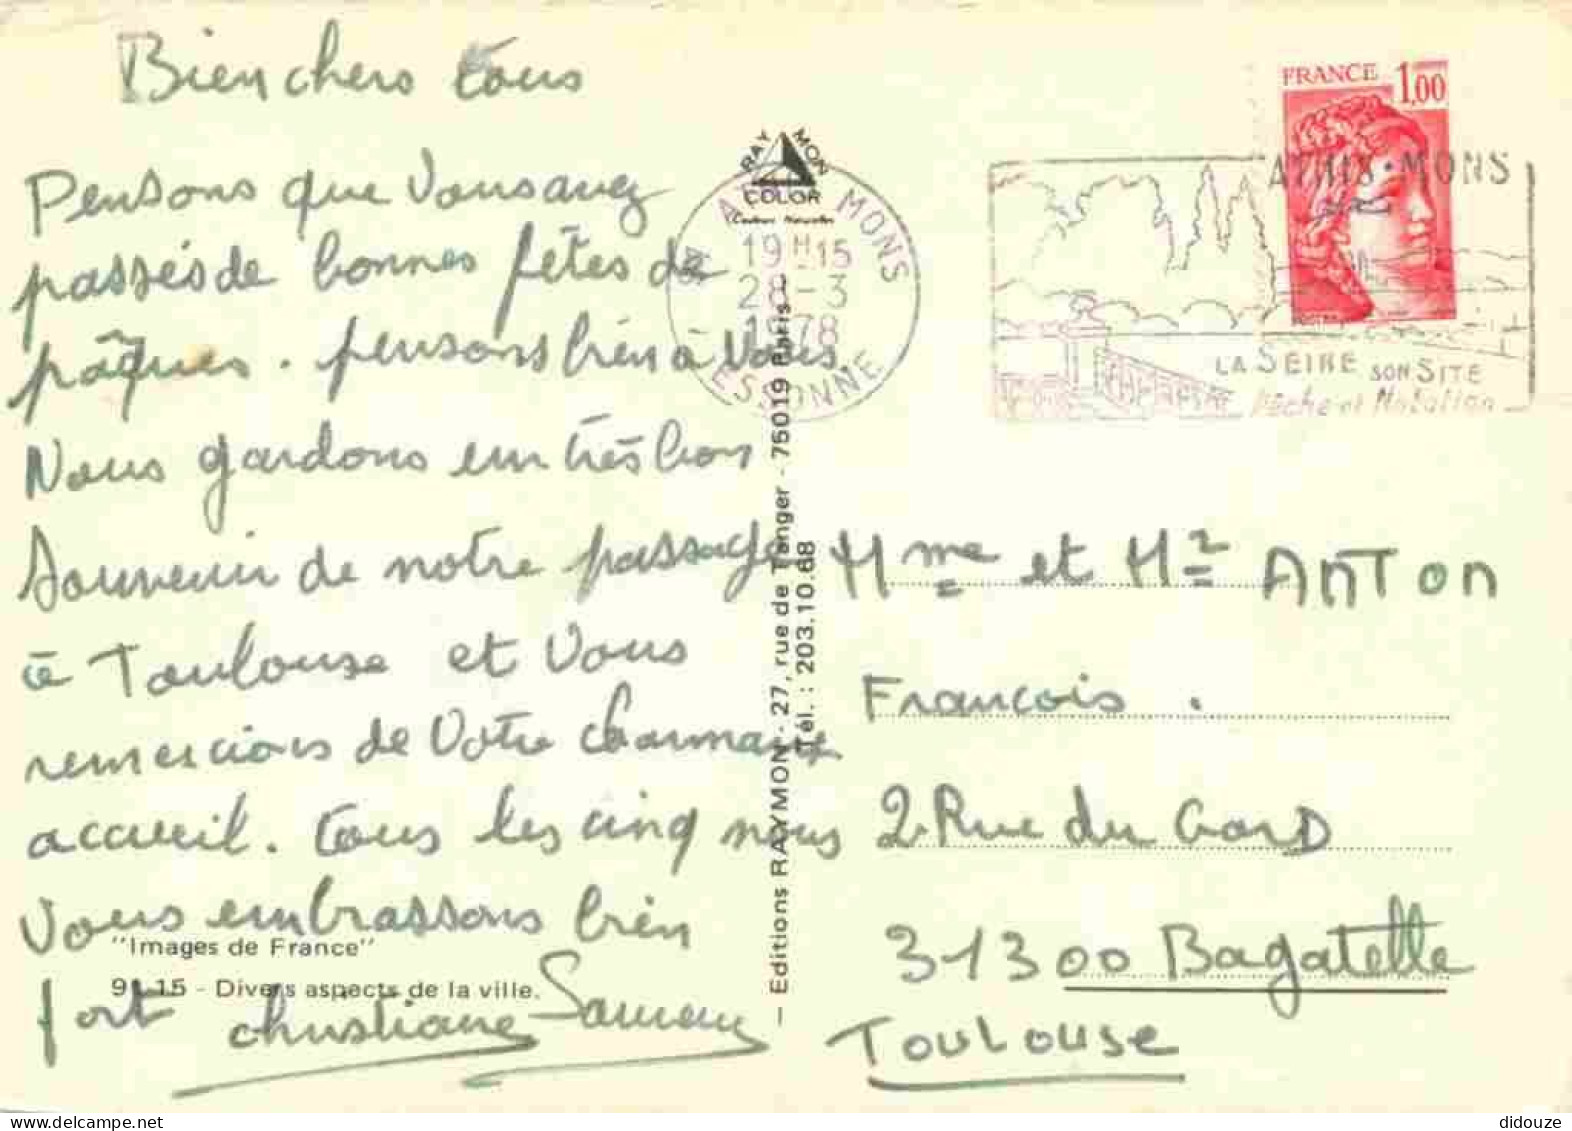 Bien chers tous
Pensons que vous avez
passés de bonnes fêtes de
pâques. pensons bien à vous.
Nous gardons un très bon
Souvenir de notre passage
à Toulouse et vous
remercions de votre charmant
accueil. tous les cinq nous
vous embrassons bien
fort christiane
"Images de France"
91.15 - Divers aspects de la ville.
RAYMON
COLOR
MONS
19H15
28-3
1978
ESSONNE
— Editions RAYMON - 27, rue de Tanger - 75019 Paris —
Tél. : 203.10.68
FRANCE 1,00
ATHIS-MONS
LA SEINE SON SITE
Pêche et Natation
Mme et Mr ANTON
Francois.
2 Rue du GarD
31300 Bagatelle
Toulouse
didouze